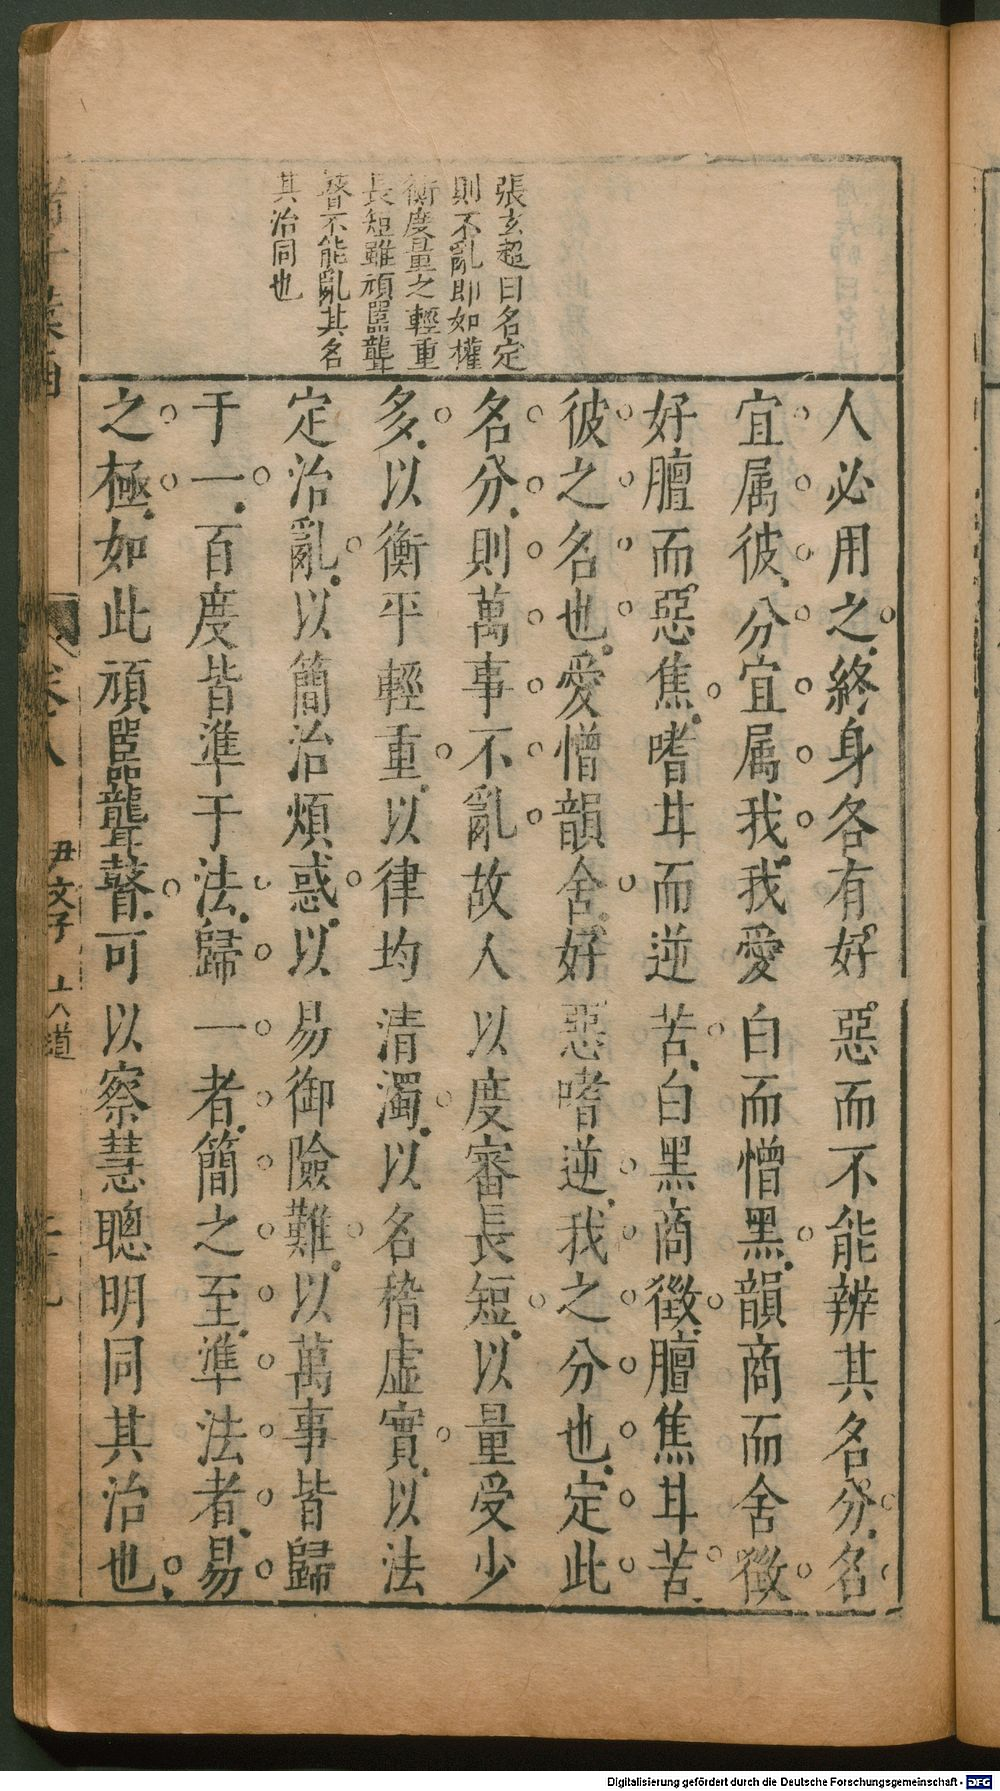 張玄超曰名定
則不亂即如權
衡度量之輕重
長短雖頑嚚聾
瞽不能亂其名
其治同也
人必用之終身各有好惡而不能辨其名分名
宜属彼分宜属我我愛白而憎黑韻商而舍徵
好膻而惡焦嗜甘而逆苦白黑商徵膻焦甘苦
彼之名也愛憎韻舍好惡嗜逆我之分也定此
名分則萬事不亂故人以度審長短以量受少
多以衡平輕重以律均清濁以名稽虛實以法
定治亂以簡治煩惑以易御險難以萬事皆歸
于一百度皆準于法歸一者簡之至準法者易
之極如此頑嚚聾瞽可以察慧聰明同其治也
卷八
尹文子 大道
Digitalisierung gefördert durch die Deutsche Forschungsgemeinschaft - DFG